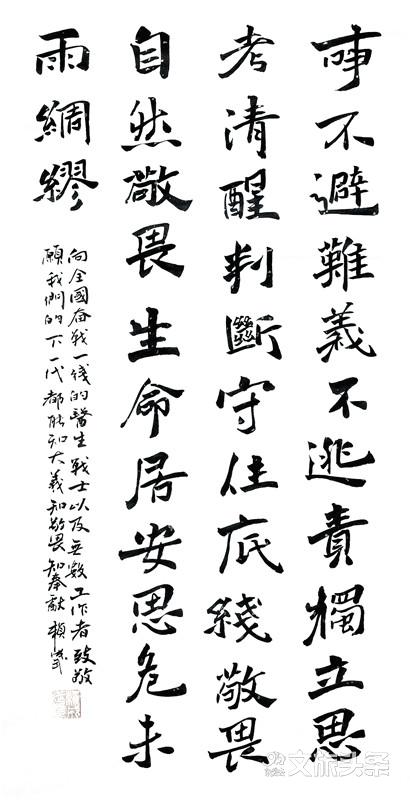 事不避難義不逃責獨立思
考清醒判斷守住底綫敬畏
自然敬畏生命居安思危未
雨綢繆
向全國奋戰一綫的醫生戰士以及無數工作者致敬
願我們的下一代都能知大義知敬畏知奉獻 賴
文旅头条